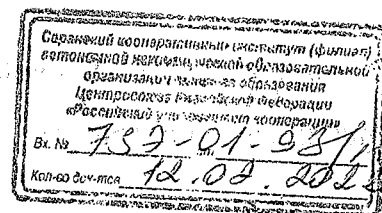 Саранский кооперативный институт (филиал)
автономной некоммерческой образовательной
организации высшего образования
Центросоюза Российской Федерации
«Российский университет кооперации»
Вх. №
Кол-во док-тов 12.02.202